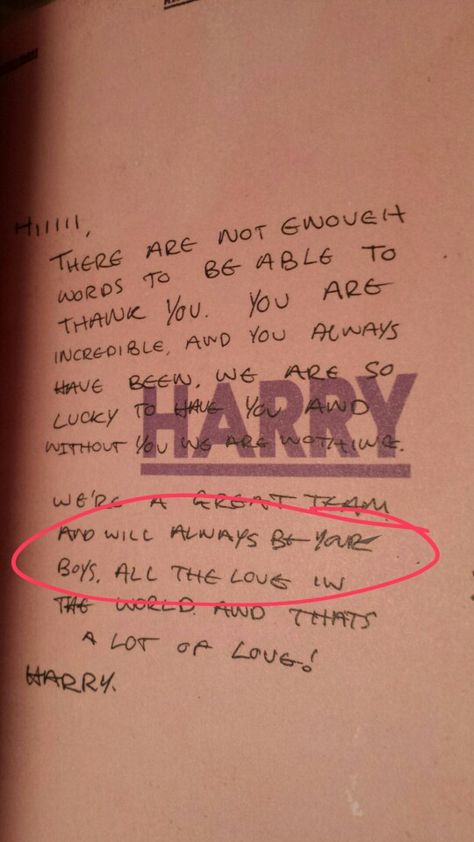 HIIIIII,
THERE ARE NOT ENOUGH
WORDS TO BE ABLE TO
THANK YOU. YOU ARE
INCREDIBLE, AND YOU ALWAYS
HAVE BEEN. WE ARE SO
LUCKY TO HAVE YOU AND
HARRY
WITHOUT YOU WE ARE NOTHING.
WE'RE A GREAT TEAM
AND WILL ALWAYS BE YOUR
BOYS. ALL THE LOVE IN
THE WORLD. AND THATS
A LOT OF LOVE!
HARRY.